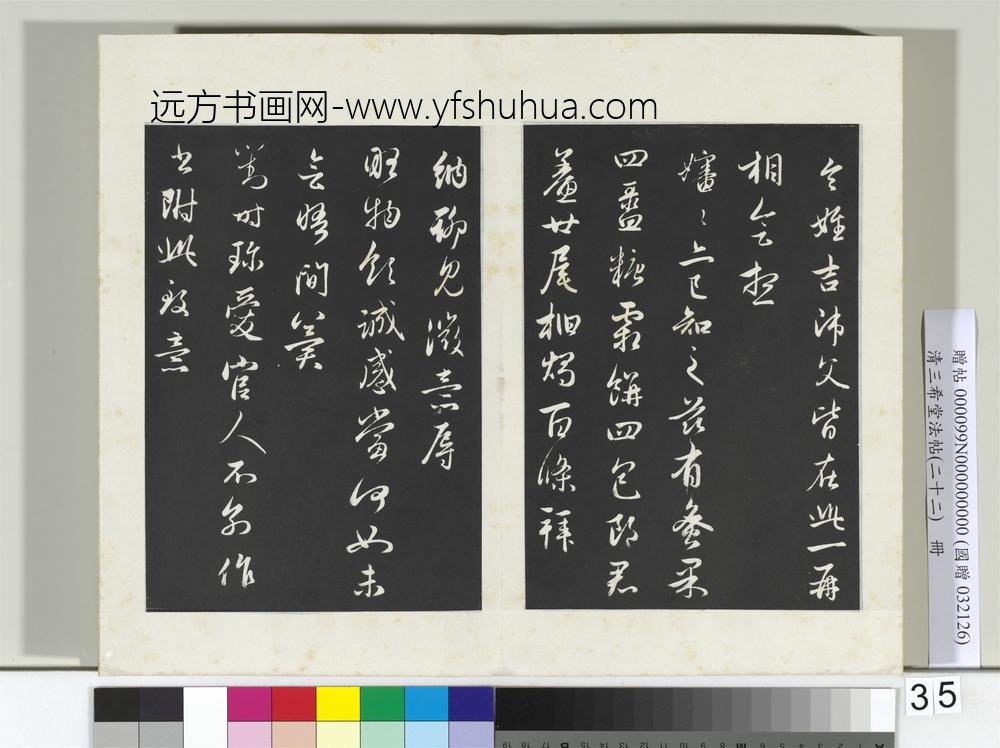 远方书画网-www.yfshuhua.com
令姪吉沛父皆在此一再
相会想
嬸〻上已知之茲有番果
四盝糖霜餅四包郎君
鯗廿尾桕燭百條拜
納聊見微意辱
貺物領誠感當何如未
会晤間冀
對時珍愛官人不別作
書附此致意
贈帖 000099N000000000 (國贈 032126)
清三希堂法帖(二十二) 冊
35